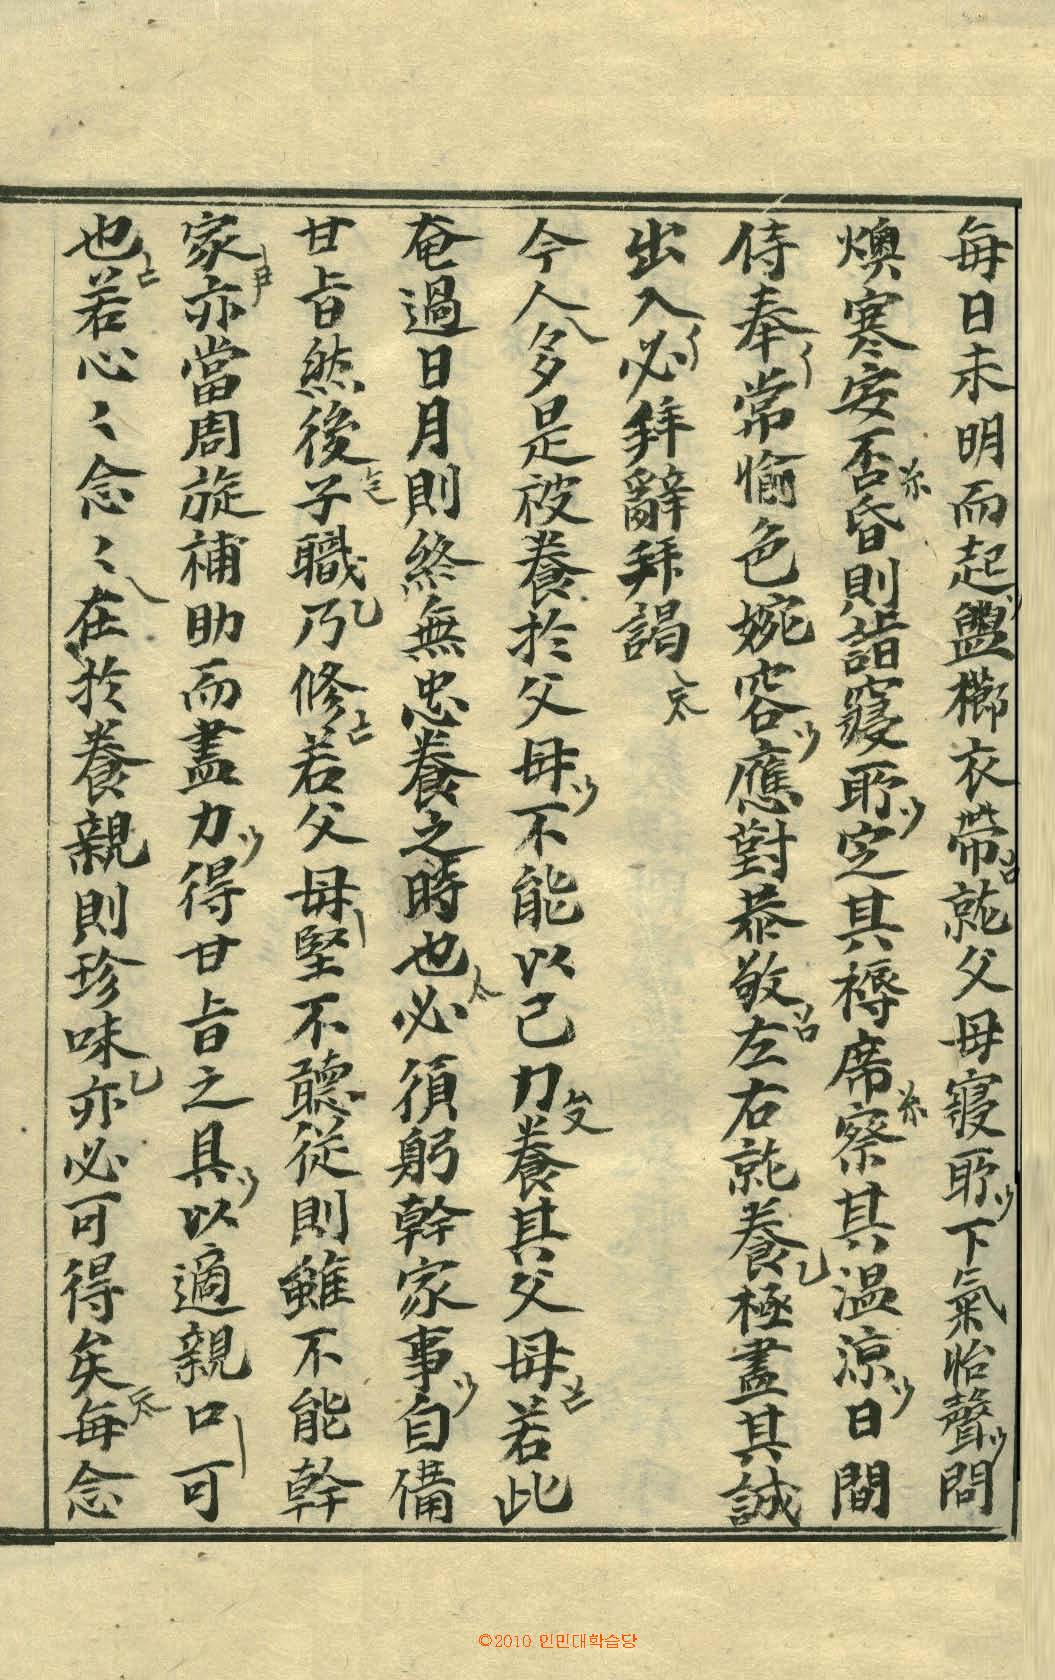 每日未明而起盥櫛衣帶就父母寢所下氣怡聲問
燠寒安否昏則詣寢所定其褥席察其温凉日間
侍奉常愉色婉容應對恭敬左右就養極盡其誠
出入必拜辭拜謁
今人多是被養於父母不能以己力養其父母若此
奄過日月則終無忠養之時也必須躬幹家事自備
甘旨然後子職乃修若父母堅不聽從則雖不能幹
家亦當周旋補助而盡力得甘旨之具以適親口可
也若心〻念〻在於養親則珍味亦必可得矣每念
©2010 인민대학습당